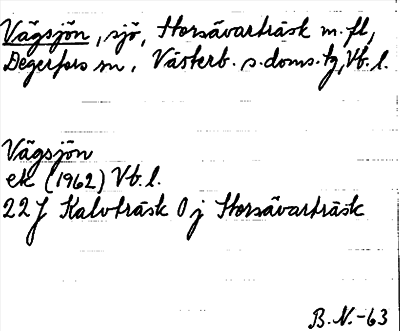 Vägsjön, sjö, Storsävarträsk m. fl,
Degerfors sn, Västerb. s. doms. tg, Vb. l.
Vägsjön
ek (1962) Vb. l.
22J Kalvträsk 0j Storsävarträsk
B.N.-63